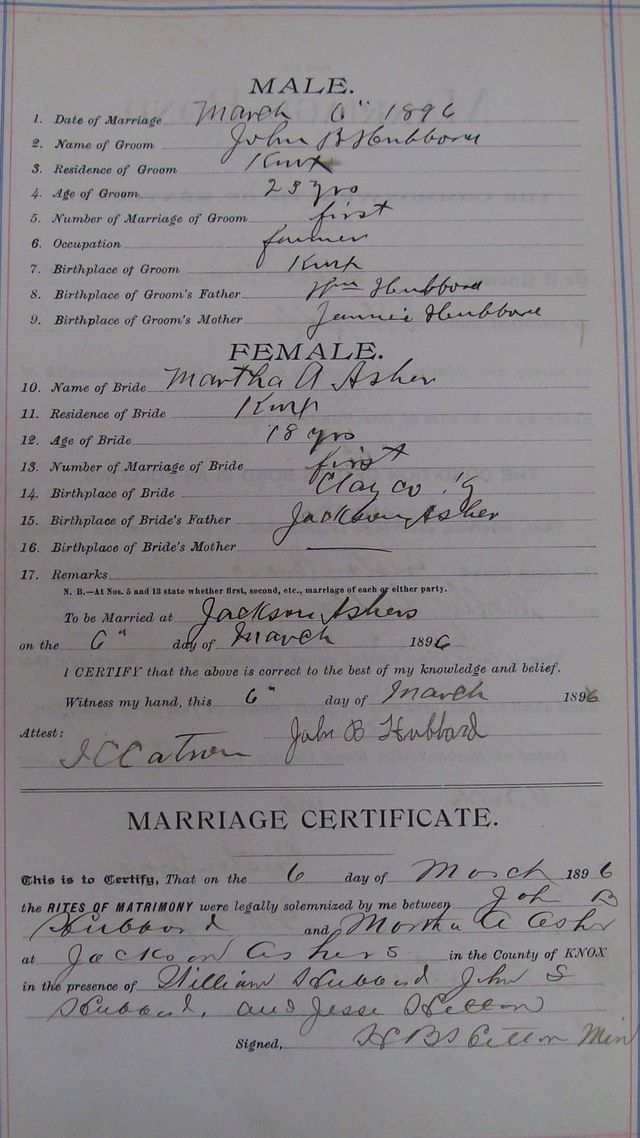 MALE.
1. Date of Marriage March 6" 1896
2. Name of Groom John B Hubbard
3. Residence of Groom Knox
4. Age of Groom 23 yrs
5. Number of Marriage of Groom first
6. Occupation farmer
7. Birthplace of Groom Knox
8. Birthplace of Groom's Father Wm Hubbard
9. Birthplace of Groom's Mother Jennie Hubbard
FEMALE.
10. Name of Bride Martha A Asher
11. Residence of Bride Knox
12. Age of Bride 18 yrs
13. Number of Marriage of Bride first
14. Birthplace of Bride Clay co Ky
15. Birthplace of Bride's Father Jackson Asher
16. Birthplace of Bride's Mother
17. Remarks
N. B.—At Nos. 5 and 13 state whether first, second, etc., marriage of each or either party.
To be Married at Jackson Ashers
on the 6" day of March 1896
I CERTIFY that the above is correct to the best of my knowledge and belief.
Witness my hand, this 6" day of March 1896
Attest: John B Hubbard
MARRIAGE CERTIFICATE.
This is to Certify, That on the 6 day of March 1896
the RITES OF MATRIMONY were legally solemnized by me between John B
Hubbard and Martha A Asher
at Jackson Ashers in the County of KNOX
in the presence of William Hubbard John S
Hubbard, and Jesse
Signed, H B Min